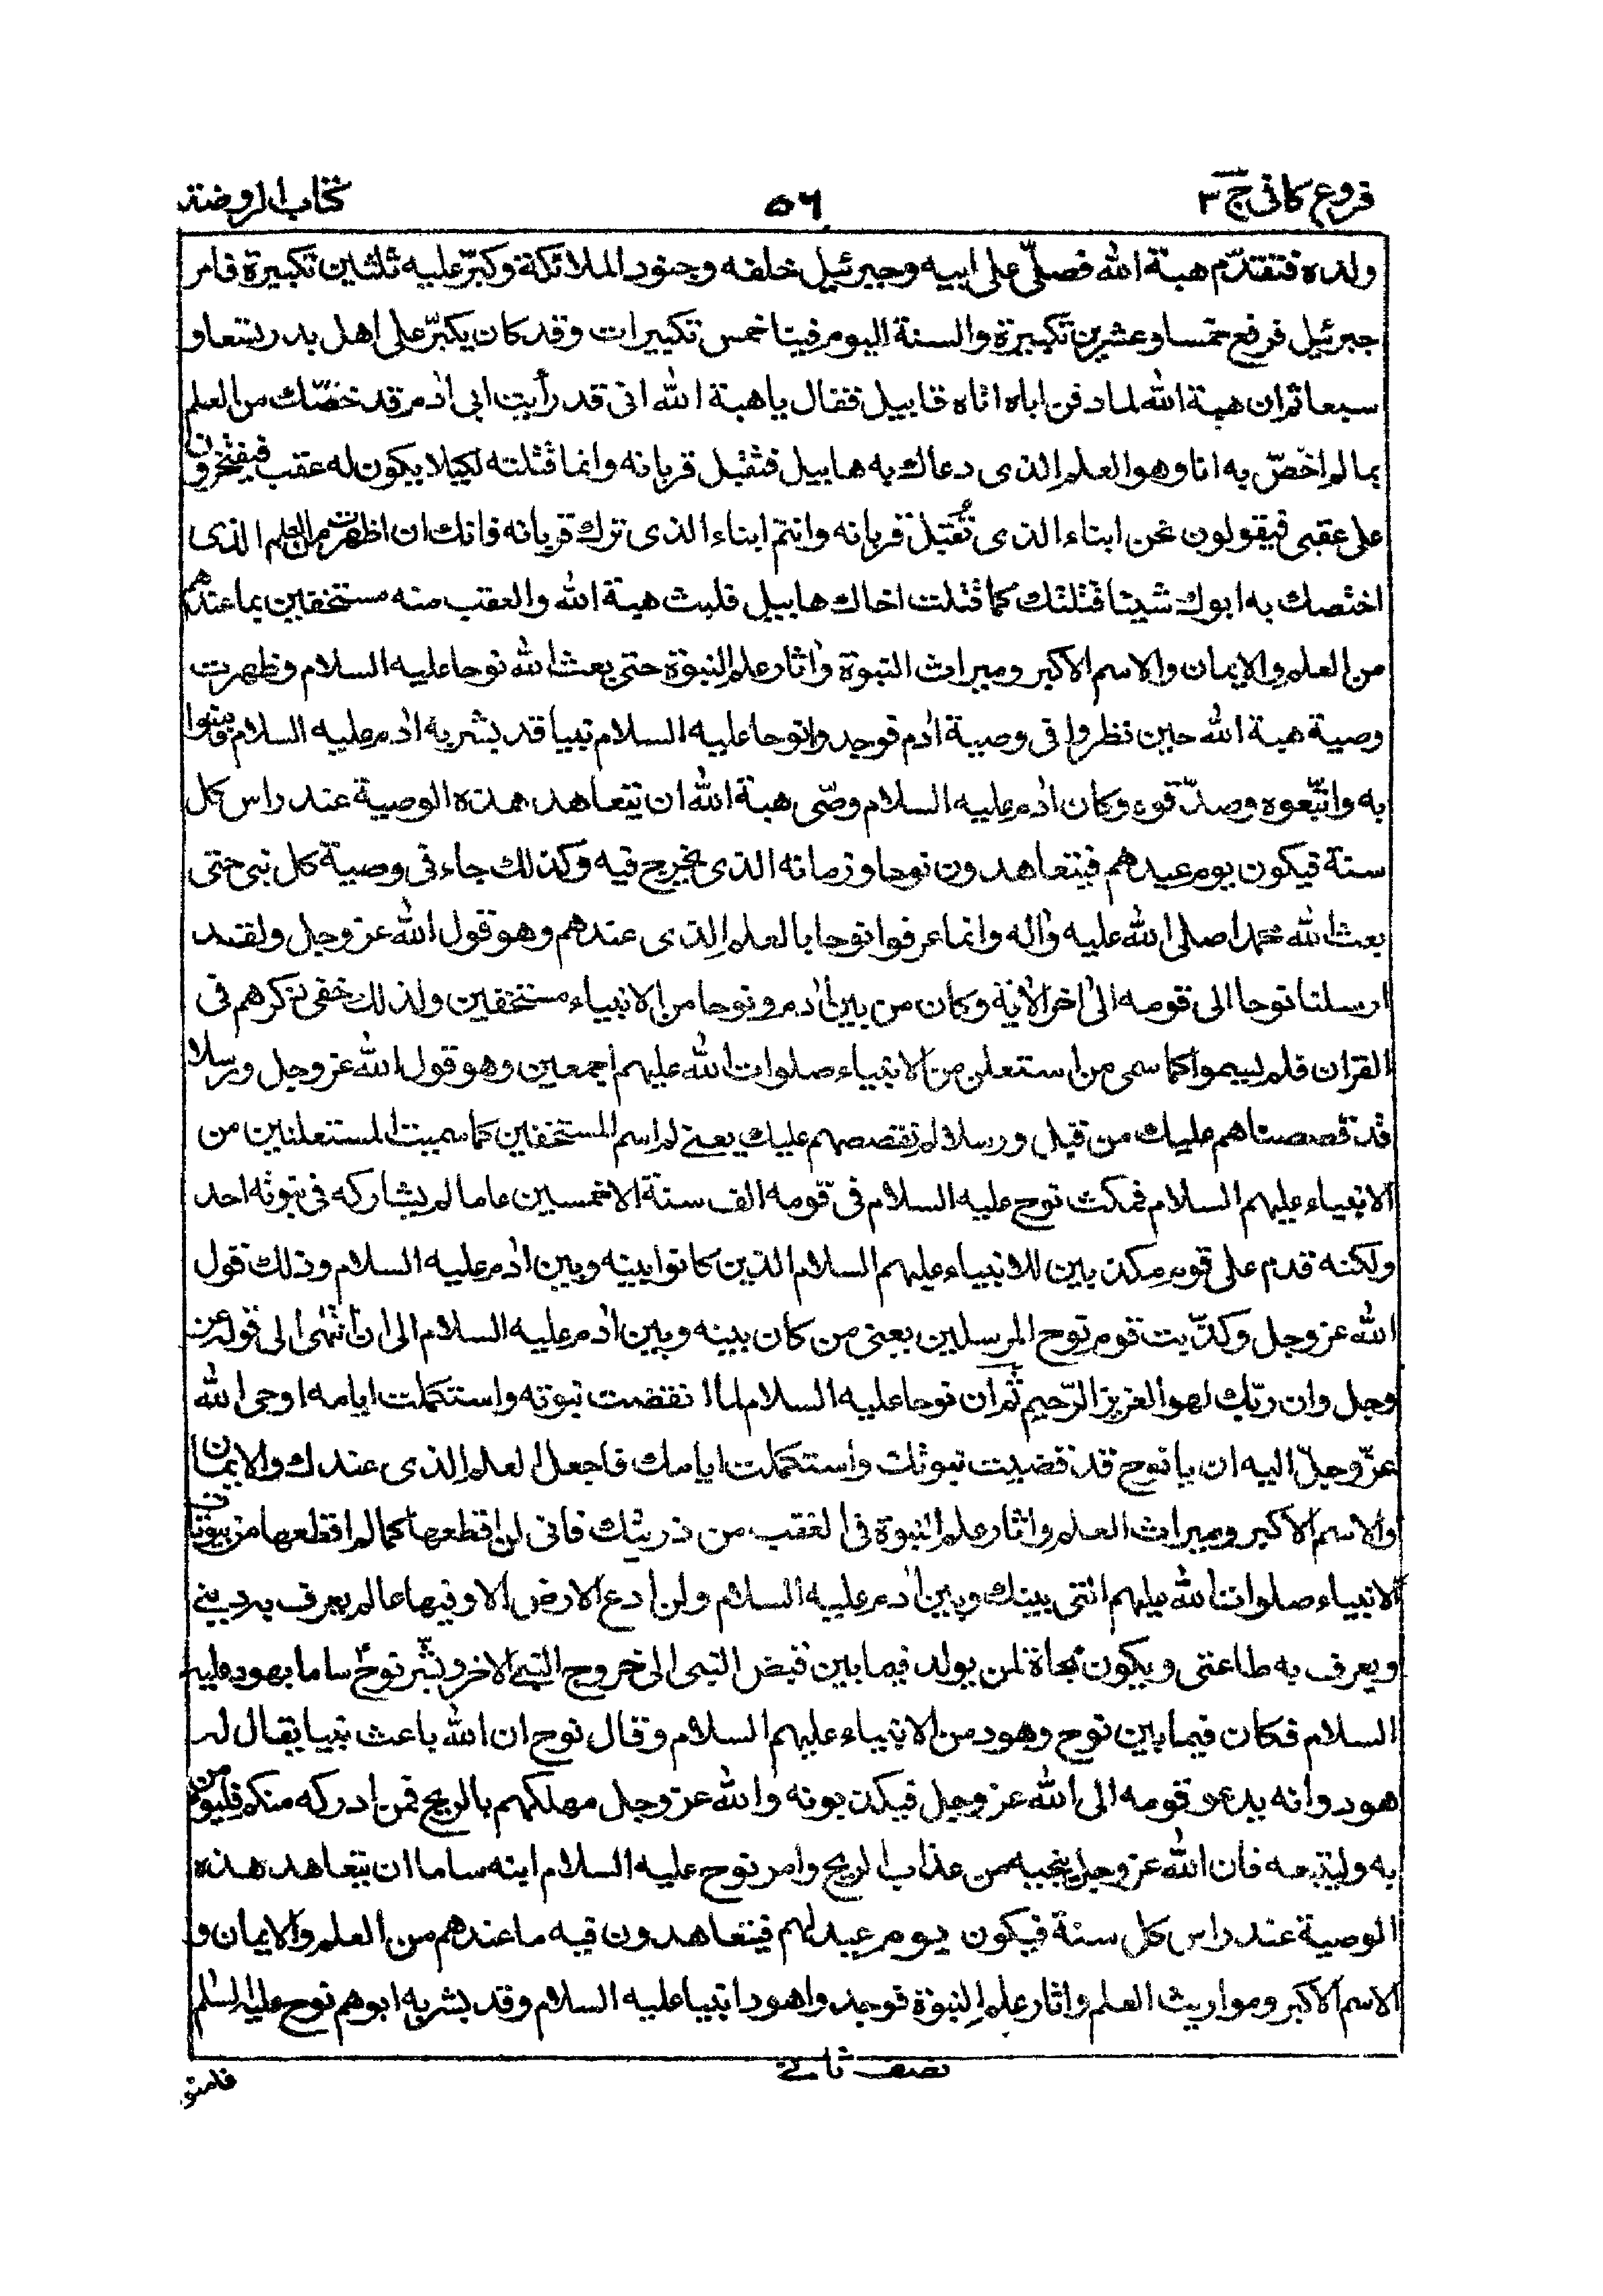 فروع كافى ج ٣
٥٦
كتاب الروضة
ولده فتقدّم هبة الله فصلّى على ابيه وجبرئيل خلفه وجنود الملائكة وكبّر عليه ثلثين تكبيرة فامر
جبرئيل فرفع خمسا وعشرين تكبيرة والسنة اليوم فينا خمس تكبيرات وقد كان يكبّر على اهل بدر تسعا و
سبعا ثم ان هبة الله لما دفن اباه اتاه قابيل فقال يا هبة الله انى قد رأيت ابى ادم قد خصّك من العلم
بما لم اخصّ به انا وهو العلم الذى دعاك به هابيل فتقبل قربانه وانما قتلته لكيلا يكون له عقب فيفتخرون
على عقبى فيقولون نحن ابناء الذى تُقبّل قربانه وانتم ابناء الذى ترك قربانه فانك ان اظهرت من العلم الذى
اختصك به ابوك شيئا قتلتك كما قتلت اخاك هابيل فلبث هبة الله والعقب منه مستخفين بما عندهم
من العلم والايمان والاسم الاكبر وميراث النبوة واثار علم النبوة حتى بعث الله نوحا عليه السلام وظهرت
وصية هبة الله حين نظروا فى وصية ادم فوجدوا نوحا عليه السلام نبيا قد بشر به ادم عليه السلام فامنوا
به واتّبعوه وصدّقوه وكان ادم عليه السلام وصّى هبة الله ان يتعاهد هذه الوصية عند راس كل
سنة فيكون يوم عيدهم فيتعاهدون نوحا وزمانه الذى يخرج فيه وكذلك جاء فى وصية كل نبى حتى
بعث الله محمدا صلى الله عليه واله وانما عرفوا نوحا بالعلم الذى عندهم وهو قول الله عز وجل ولقد
ارسلنا نوحا الى قومه الى اخر الاية وكان من بين ادم ونوحا من الانبياء مستخفين ولذلك خفى ذكرهم فى
القران فلم يسموا كما سمى من استعلن من الانبياء صلوات الله عليهم اجمعين وهو قول الله عز وجل ورسلا
قد قصصناهم عليك من قبل ورسلا لم نقصصهم عليك يعنى لم اسم المستخفين كما سميت المستعلنين من
الانبياء عليهم السلام فمكث نوح عليه السلام فى قومه الف سنة الا خمسين عاما لم يشاركه فى نبوته احد
ولكنه قدم على قوم مكذبين للانبياء عليهم السلام الذين كانوا بينه وبين ادم عليه السلام وذلك قول
الله عز وجل وكذّبت قوم نوح المرسلين يعنى من كان بينه وبين ادم عليه السلام الى ان انتهى الى قوله عز
وجل وان ربّك لهو العزيز الرّحيم ثم ان نوحا عليه السلام لما انقضت نبوته واستكملت ايامه اوحى الله
عزّ وجلّ اليه ان يا نوح قد قضيت نبوتك واستكملت ايامك فاجعل العلم الذى عندك والايمان
والاسم الاكبر وميراث العلم واثار علم النبوة فى العقب من ذريتك فانى لن اقطعها كما لم اقطعها من بيوتات
الانبياء صلوات الله عليهم التى بينك وبين ادم عليه السلام ولن ادع الارض الا وفيها عالم يعرف به دينى
ويعرف به طاعتى ويكون نجاة لمن يولد فيما بين قبض النبى الى خروج النبى الاخر وبشّر نوح ساما بهود عليه
السلام فكان فيما بين نوح وهود من الانبياء عليهم السلام وقال نوح ان الله باعث نبيا يقال له
هود وانه يدعو قومه الى الله عز وجل فيكذبونه والله عز وجل مهلكهم بالريح فمن ادركه منكم فليؤمن
به وليتبعه فان الله عز وجل ينجيه من عذاب الريح وامر نوح عليه السلام ابنه ساما ان يتعاهد هذه
الوصية عند راس كل سنة فيكون يوم عيد لهم فيتعاهدون فيه ما عندهم من العلم والايمان و
الاسم الاكبر ومواريث العلم واثار علم النبوة فوجدوا هودا نبيا عليه السلام وقد بشر به ابوهم نوح عليه السلم
نصف ثانى
فامنوا